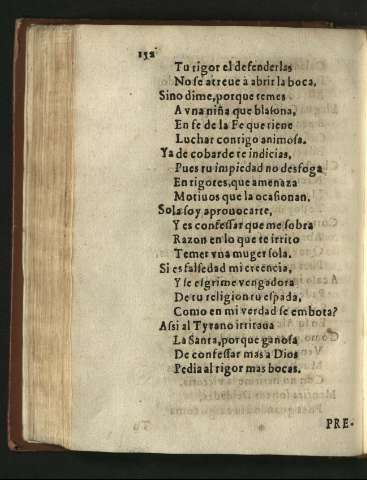 152
Tu rigor el defenderlas
No se atreue à abrir la boca,
Sino dime, porque temes
A vna niña que blasona,
En fe de la Fe que tiene
Luchar contigo animosa.
Ya de cobarde te indicias,
Pues tu impiedad no desfoga
En rigores, que amenaza
Motiuos que la ocasionan.
Sola soy aprouocarte,
Y es confessar que me sobra
Razon en lo que te irrito
Temer vna muger sola.
Si es falsedad mi creencia,
Y se esgrime vengadora
De tu religion tu espada,
Como en mi verdad se embota?
Assi al Tyrano irritaua
La Santa, porque ganosa
De confessar mas a Dios
Pedia al rigor mas bocas.
PRE-